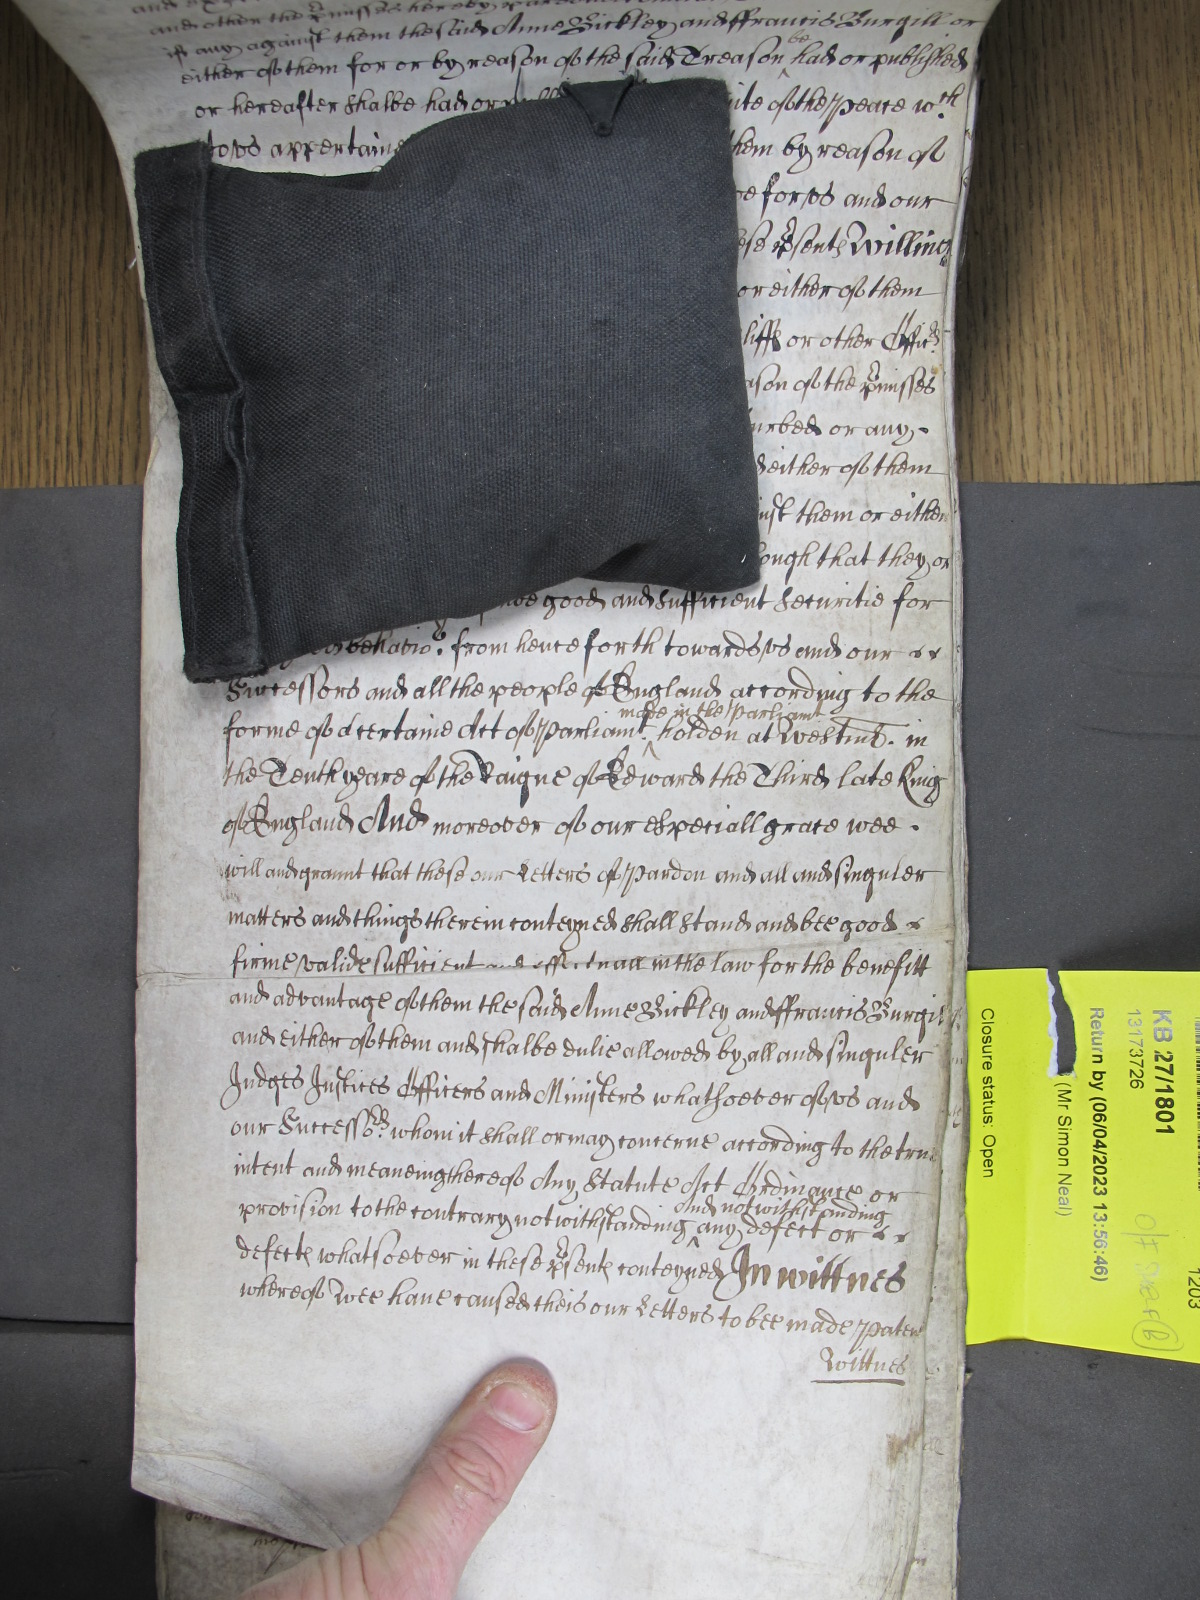 and other the p[re]misses hereby pardoned
if any against them the said Anne Bickley and ffrancis Burgill or
be
either of them for or by reason of the said Treason ^ had or published
or hereafter shalbe had or ite of the peace wch
to vs appertaine hem by reason of
for vs and our
ese p[re]sents Willing
or either of them
liffs or other Offic[er]s
ason of the p[re]misses
urbed or any
either of them
inst them or either
ough that they or
good and sufficient Securitie for
behavio[r] from henceforth towards vs and our
Successors and all the people of England according to the
made in the Parliamt
forme of a certaine Act of Parliamt ^ holden at Westm[inster] in
the Tenth yeare of the Raigne of Edward the Third late King
of England And moreover of our especiall grace wee
will and graunt that these our Letters of Pardon and all and singuler
matters and things therein conteyned shall stand and bee good
firme valide sufficient and effectuall in the law for the benefitt
and advantage of them the said Anne Bickley and ffrancis Burgil
and either of them and shalbe dulie allowed by all and singuler
Judges Justices Officers and Ministers whatsoever of vs and
our Successors whom it shall or may concerne according to the true
intent and meaneing thereof Any Statute Act Ordinance or
and notwithstanding
provision to the contrary notwithstanding ^ any defect or
defects whatsoever in these p[re]sents conteyned In wittnes
whereof Wee have caused theis our Letters to bee made Paten
Wittnes
KB 27/1801
13173726
Return by (06/04/2023 13:56:46)
(Mr Simon Neal)
Closure status: Open
1203